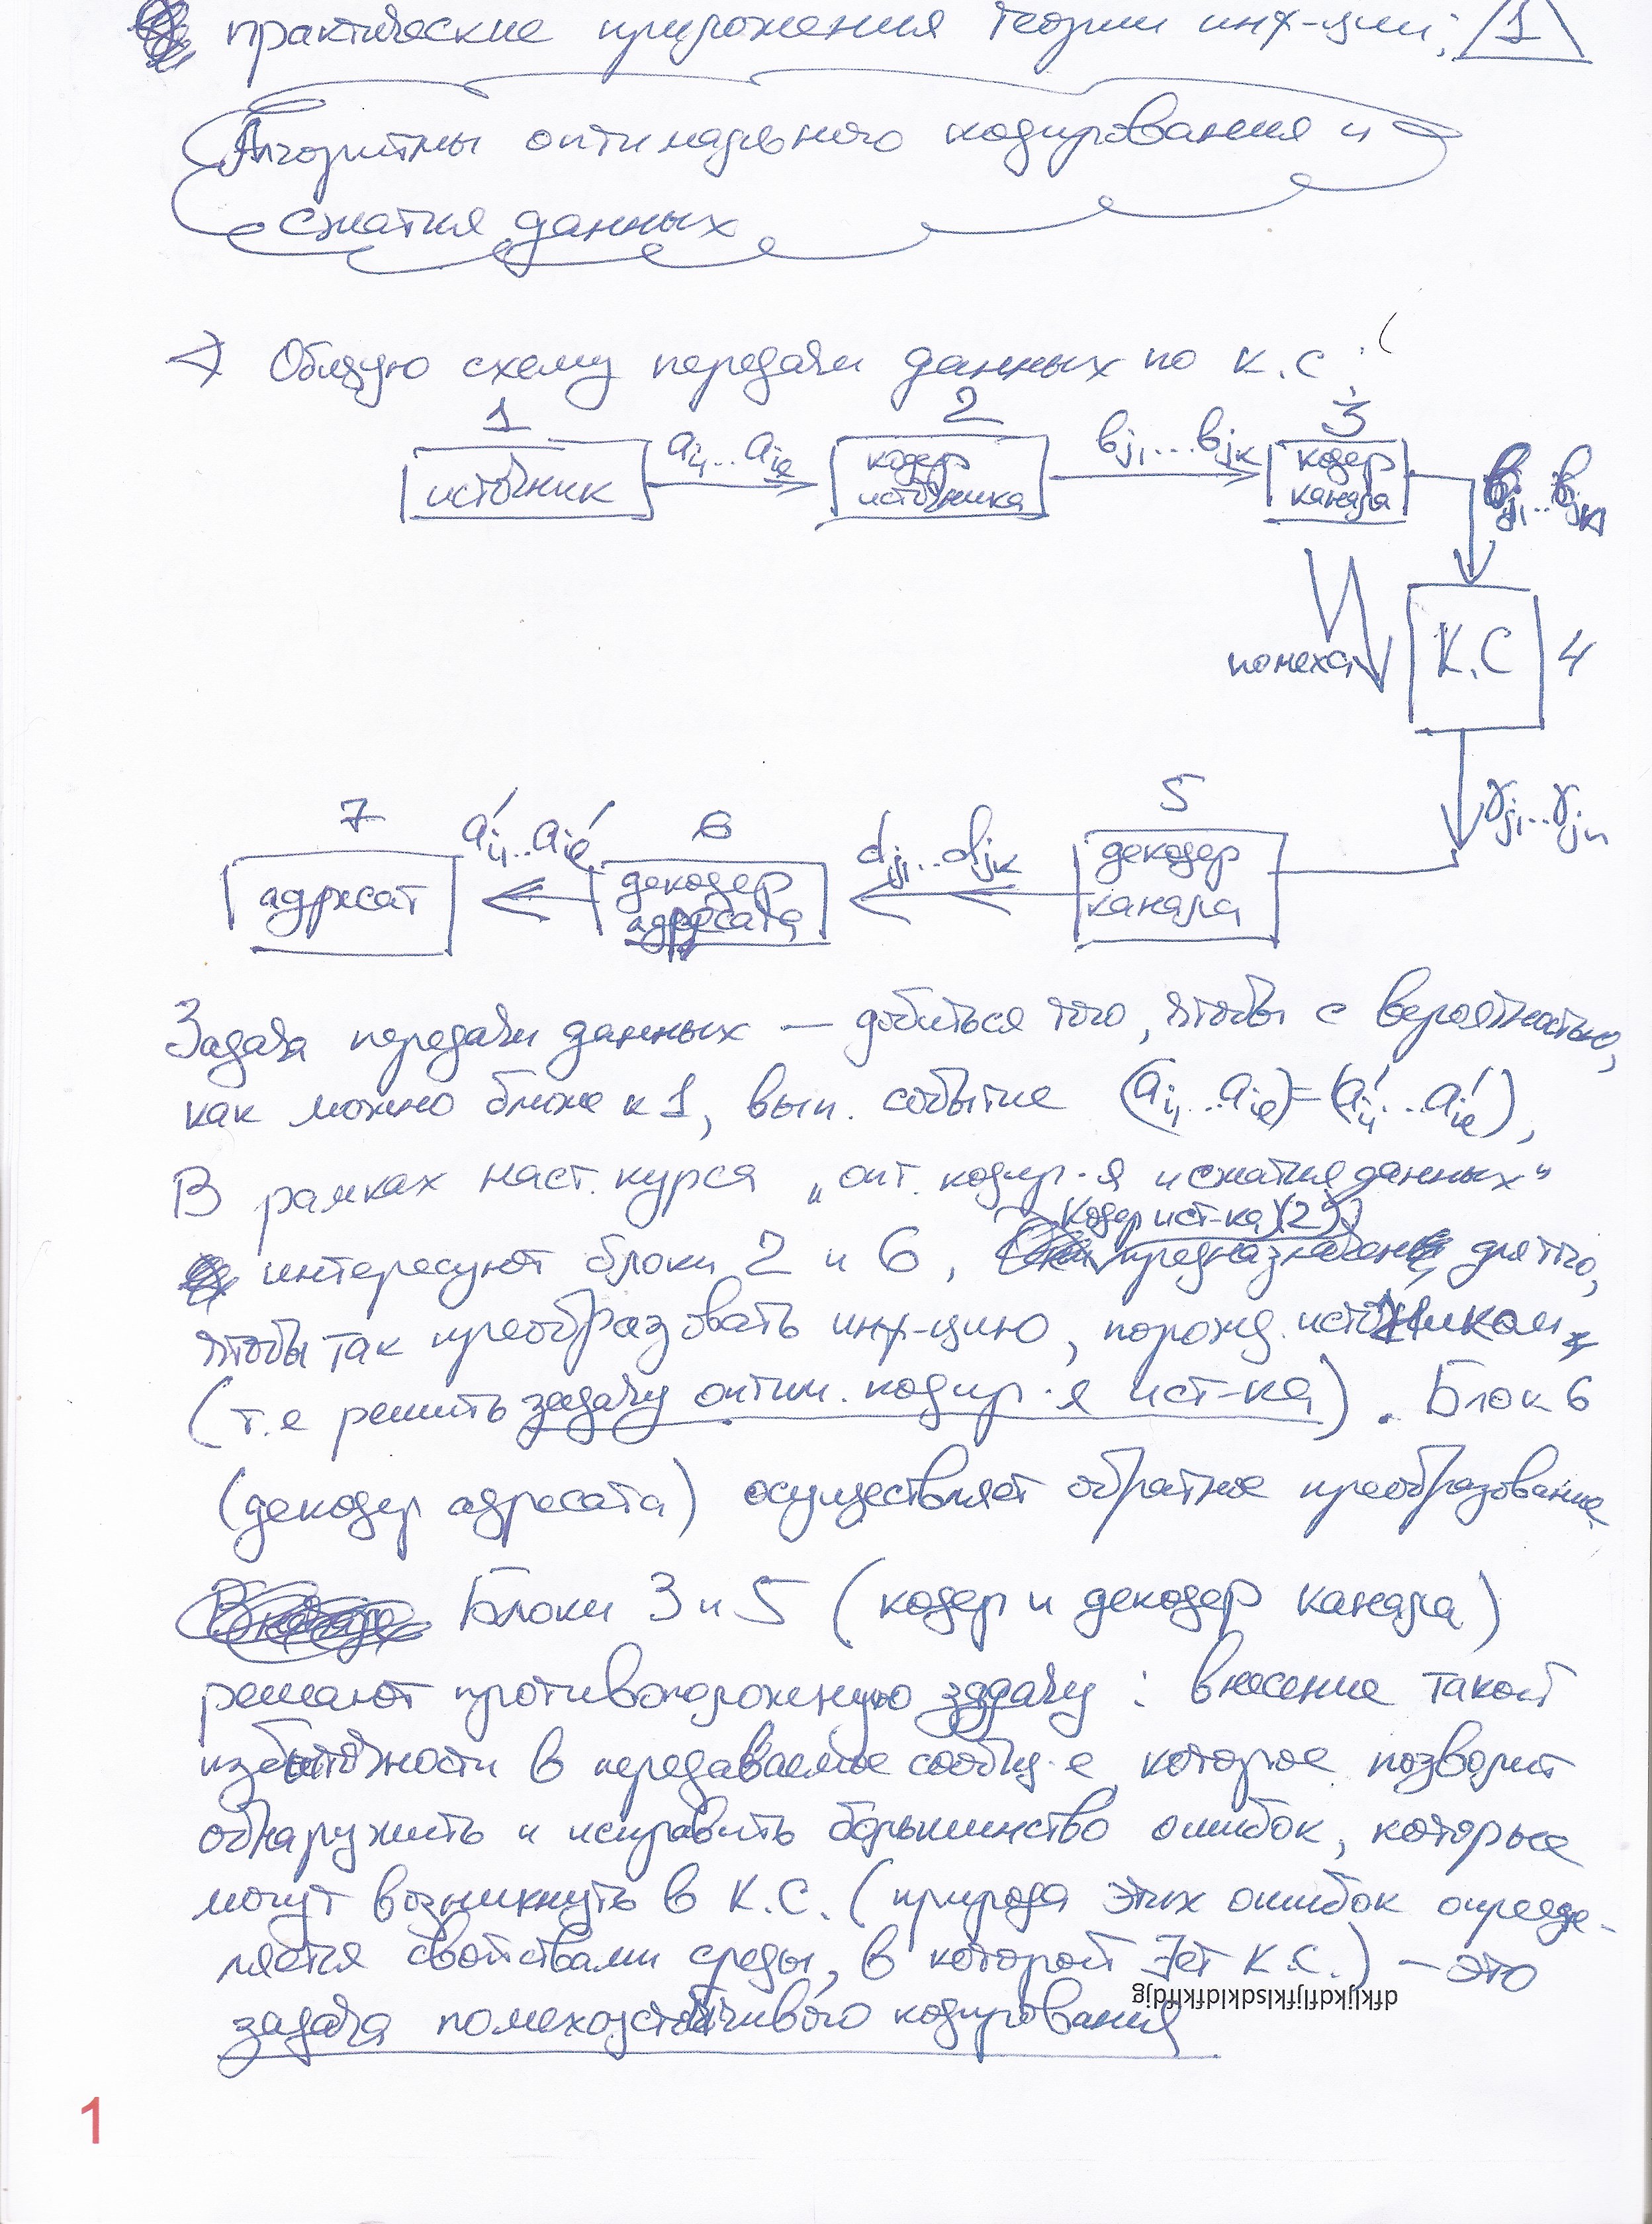 практические приложения теории инф-ции; 1
Алгоритмы оптимального кодирования и
сжатия данных
Общую схему передачи данных по к.с.:
1 2 3
источник a_{i_1}...a_{i_l} кодер источника b_{j_1}...b_{j_k} кодер канала
помеха К.С 4
γ_{j_1}...γ_{j_n}
7 6 5
адресат a'_{i_1}...a'_{i_l} декодер адресата d_{j_1}...d_{j_k} декодер канала
Задача передачи данных — добиться того, чтобы с вероятностью,
как можно ближе к 1, вып. событие (a_{i_1}...a_{i_l})=(a'_{i_1}...a'_{i_l}),
В рамках наст. курса „опт. кодир-я и сжатия данных“
Кодер ист-ка (2)
интересуют блоки 2 и 6, предназначен для того,
чтобы так преобразовать инф-цию, порожд. источником
(т.е решить задачу оптим. кодир-я ист-ка). Блок 6
(декодер адресата) осуществляет обратное преобразование
Блоки 3 и 5 (кодер и декодер канала)
решают противоположную задачу: внесение такой
избыточности в передаваемое сообщ-е, которое позволит
обнаружить и исправить большинство ошибок, которые
могут возникнуть в К.С. (природа этих ошибок опреде-
ляется свойствами среды, в которой К.С.) — это
задача помехоустойчивого кодирования
1